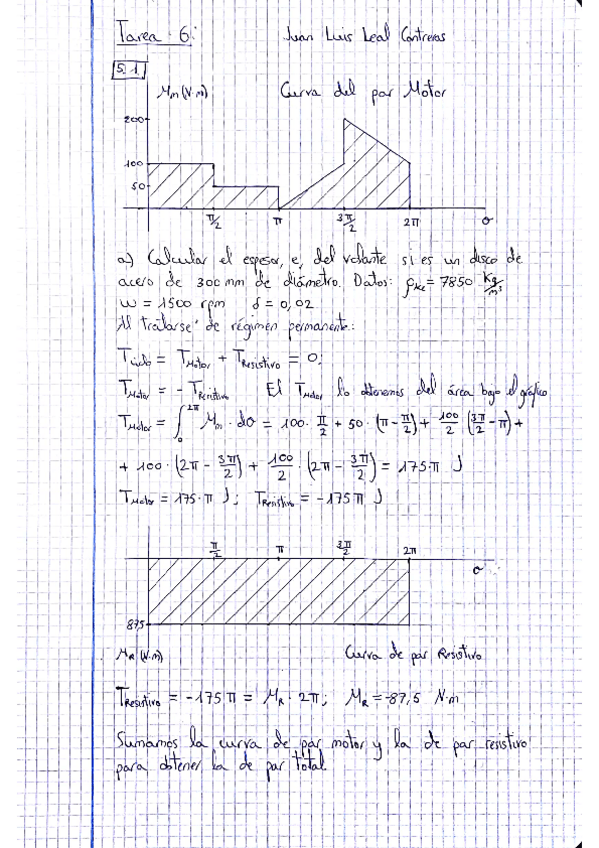 Tarea 6: Juan Luis Leal Contreras
5.1
Mm (N·m) Curva del par Motor
200
100
50
π/2 π 3π/2 2π σ
a) Calcular el espesor, e, del volante si es un disco de
acero de 300 mm de diámetro. Datos: ρ = 7850 kg/m³
ω = 1500 rpm δ = 0,02
Al tratarse de régimen permanente:
Tciclo = TMotor + TResistivo = 0;
TMotor = - TResistivo El TMotor lo obtenemos del área bajo el gráfico
TMotor = ∫₀^2π Mm · dσ = 100 · π/2 + 50 · (π - π/2) + 100/2 (3π/2 - π) +
+ 100 · (2π - 3π/2) + 100/2 · (2π - 3π/2) = 175·π J
TMotor = 175·π J; TResistivo = -175π J
π/2 π 3π/2 2π
σ
875
MR (N·m) Curva de par Resistivo
TResistivo = -175π = MR · 2π; MR = -87,5 N·m
Sumamos la curva de par motor y la de par resistivo
para obtener la de par total.